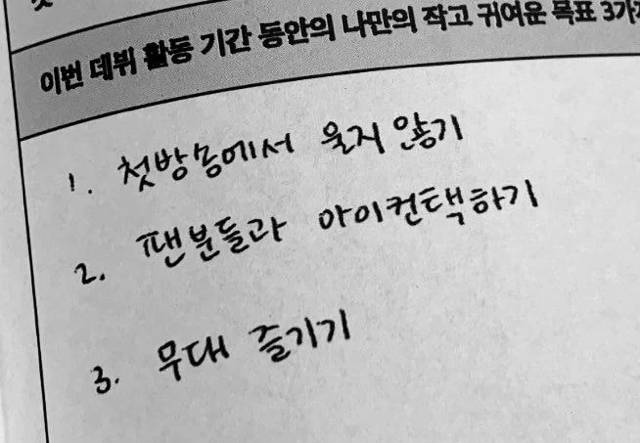 이번 데뷔 활동 기간 동안의 나만의 작고 귀여운 목표 3가지
1. 첫방송에서 울지 않기
2. 팬분들과 아이컨택하기
3. 무대 즐기기